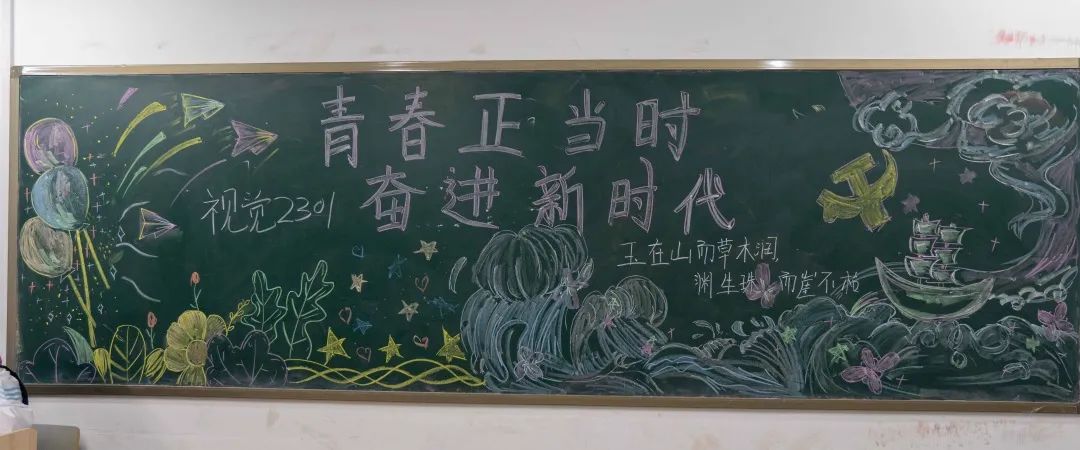 青春正当时
奋进新时代
视觉2301
玉在山而草木润,
渊生珠而崖不枯